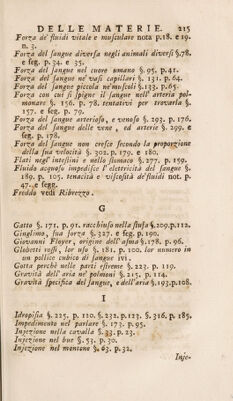 DELLE MATERIE. 215
Forza de' fluidi vitale e muscolare nota p.18. e 19.
n. 3.
Forza del sangue diversa negli animali diversi §.78.
e seg. p. 34. e 35.
Forza del sangue nel cuore umano §. 95. p.41.
Forza del sangue ne' vasi capillari §. 131. p. 64.
Forza del sangue piccola ne' muscoli §.133. p.65.
Forza con cui si spigne il sangue nell' arteria pol-
monare §. 156. p. 78. tentativi per trovarla §.
157. e seg. p. 79.
Forza del sangue arterioso, e venoso §. 293. p. 176.
Forza del sangue delle vene, ed arterie §. 299. e
seg. p. 178.
Forza del sangue non cresce secondo la proporzione
della sua velocità §. 302. p. 179. e 180.
Flati negl' intestini e nello stomaco §. 277. p. 159.
Fluido acquoso impedisce l' elettricità del sangue §.
189. p. 105. tenacità e viscosità de' fluidi not. p.
47. e segg.
Freddo vedi Ribrezzo.
G
Gatto §. 171. p. 91. racchiuso nella stufa §.209.p.112.
Guglielmo, sua forza §. 327. e seg. p. 190.
Giovanni Floyer, origine dell' asma §.178. p. 96.
Globetti rossi, lor uso §. 181. p. 100. lor numero in
un pollice cubico di sangue ivi.
Gotta perchè nelle parti estreme §. 223. p. 119.
Gravità dell' aria ne' polmoni §. 215. p. 114.
Gravità specifica del sangue, e dell' aria §.193.p.108.
I
Idropisia §. 225. p. 120. §. 232. p.123. §. 316. p. 185.
Impedimento nel parlare §. 173. p. 95.
Injezione nella cavalla §. 33. p. 23.
Injezione nel bue §. 53. p. 30.
Injezione nel montone §. 63. p. 32.
Inje-